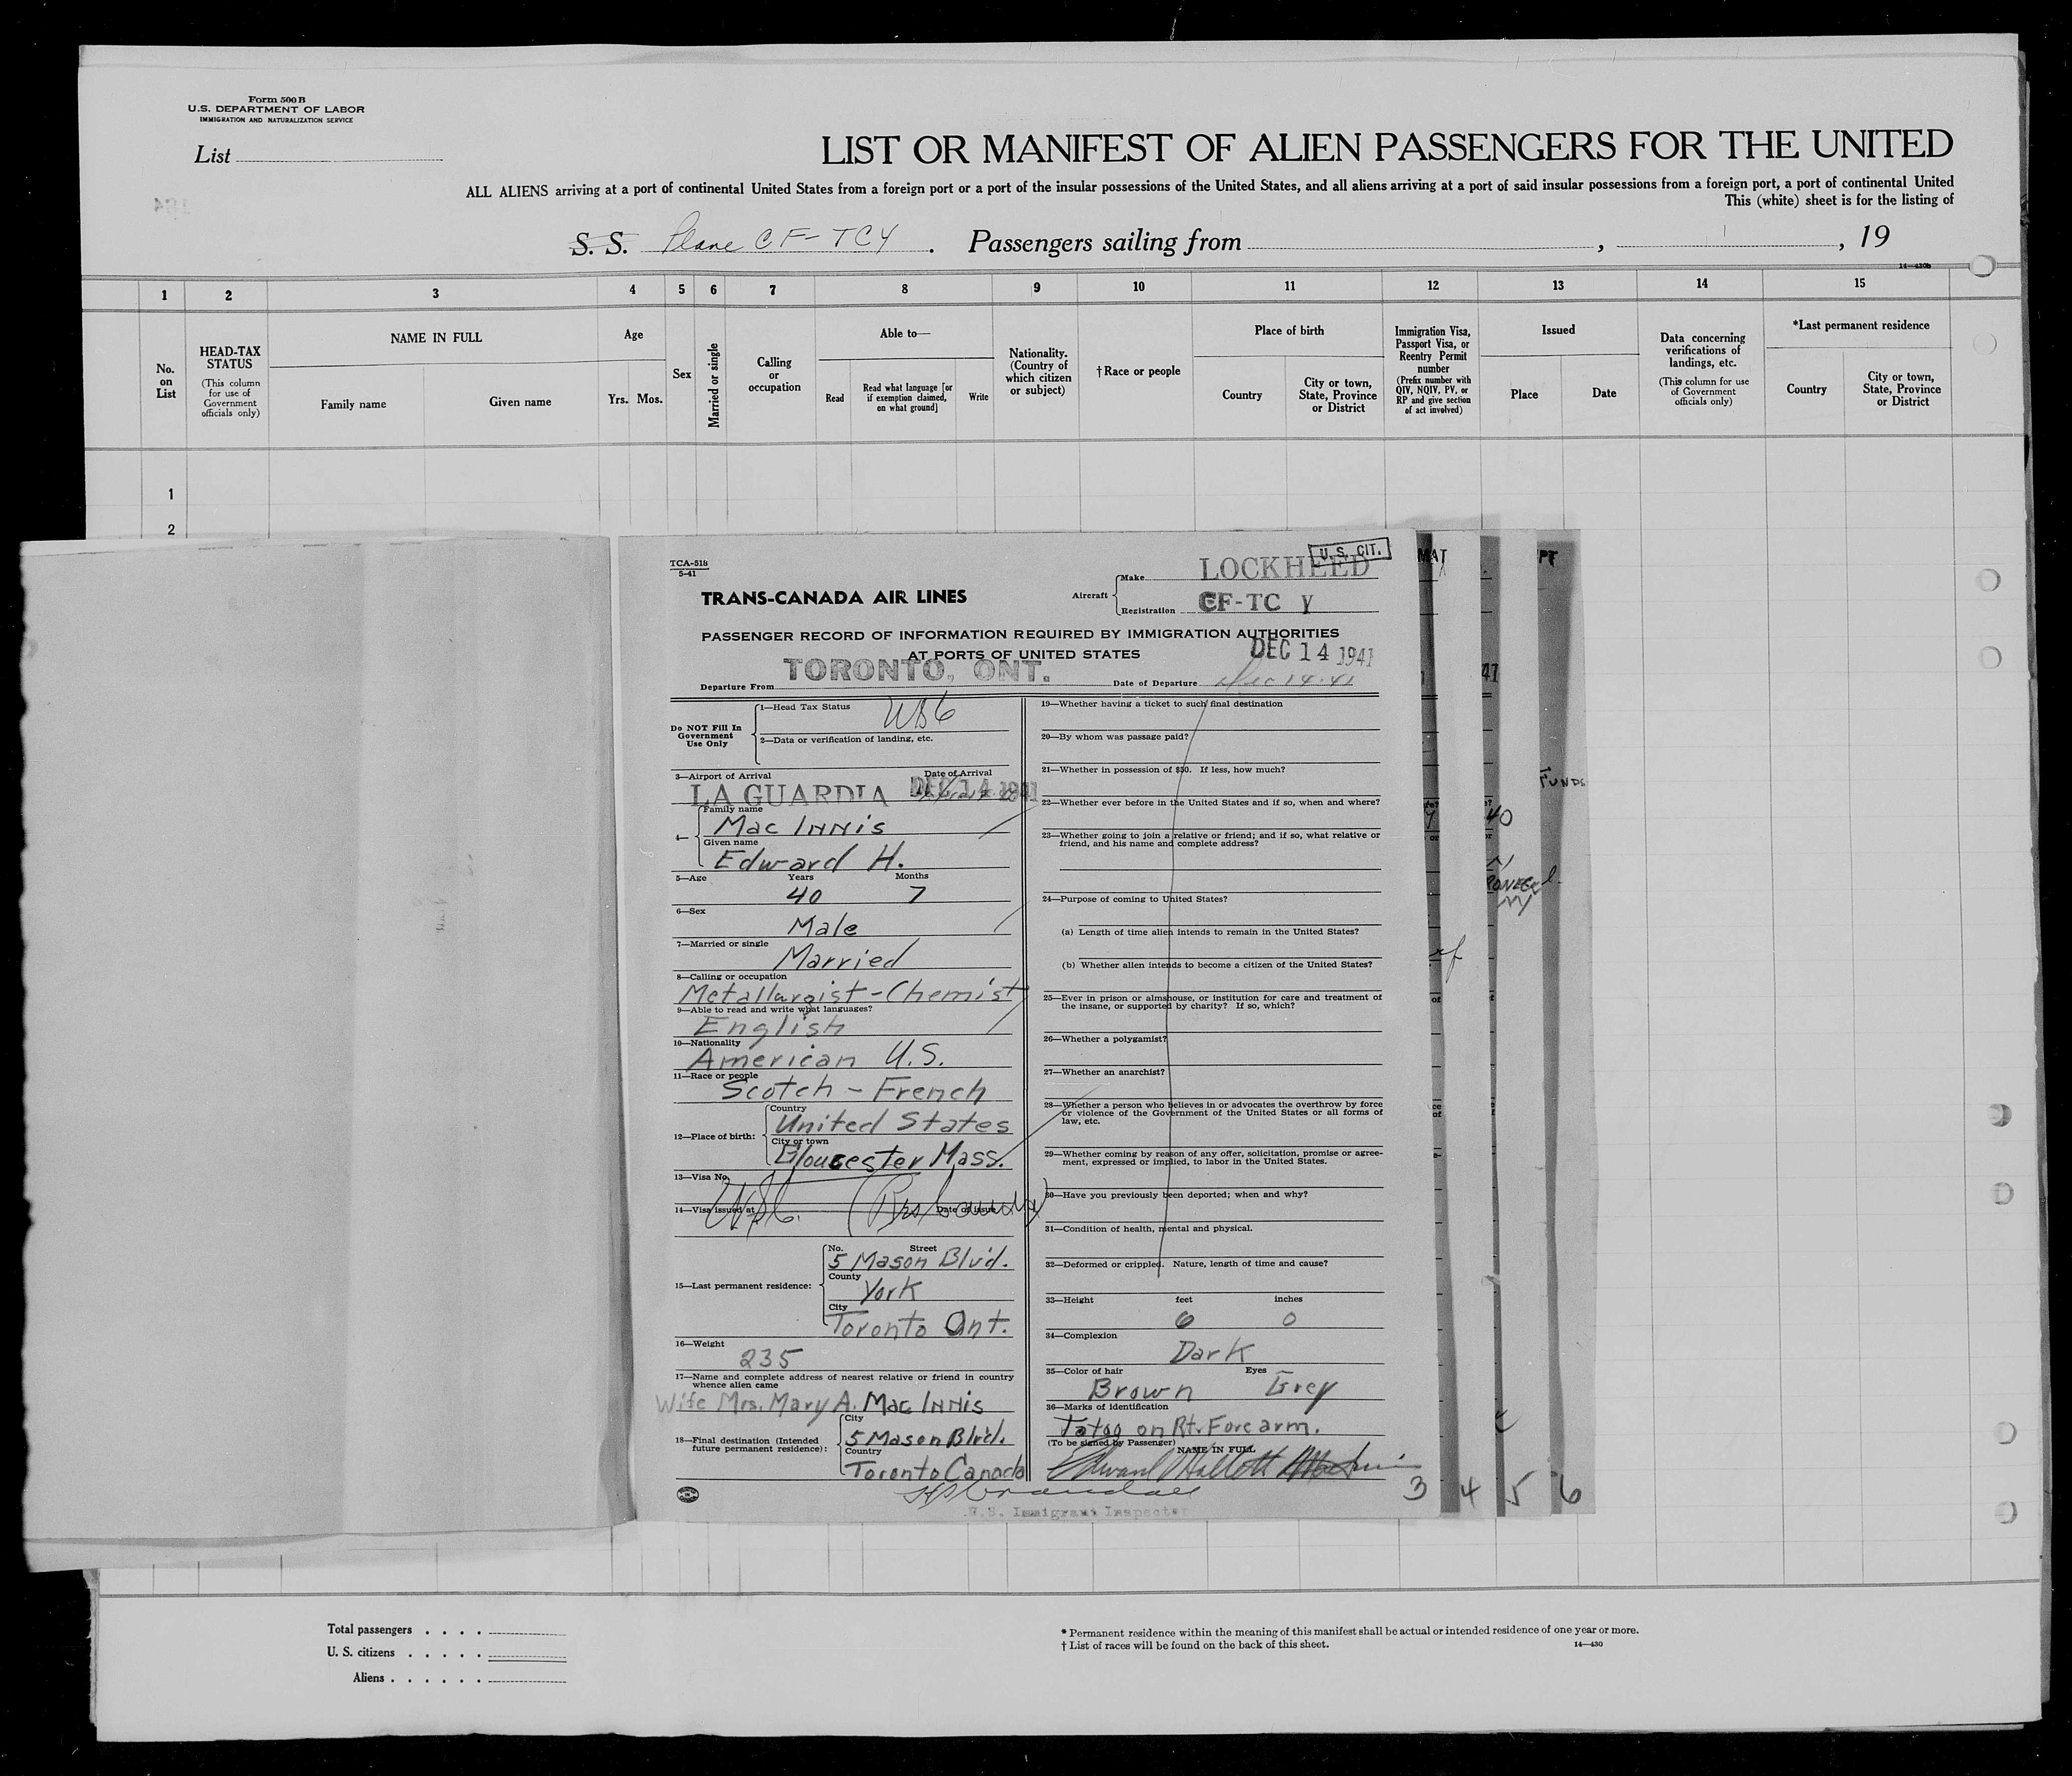 Form 500 B
U.S. DEPARTMENT OF LABOR
IMMIGRATION AND NATURALIZATION SERVICE
List
LIST OR MANIFEST OF ALIEN PASSENGERS FOR THE UNITED
ALL ALIENS arriving at a port of continental United States from a foreign port or a port of the insular possessions of the United States, and all aliens arriving at a port of said insular possessions from a foreign port, a port of continental United
This (white) sheet is for the listing of
S. S. Plane CF-TCY. Passengers sailing from , , 19
14—430b
1 2 3 4 5 6 7 8 9 10 11 12 13 14 15
No. on List
HEAD-TAX STATUS
(This column for use of Government officials only)
NAME IN FULL
Family name
Given name
Age
Yrs. Mos.
Sex
Married or single
Calling or occupation
Able to—
Read
Read what language [or if exemption claimed, on what ground]
Write
Nationality. (Country of which citizen or subject)
†Race or people
Place of birth
Country
City or town, State, Province or District
Immigration Visa, Passport Visa, or Reentry Permit number
(Prefix number with QIV, NQIV, PV, or RP and give section of act involved)
Issued
Place
Date
Data concerning verifications of landings, etc.
(This column for use of Government officials only)
*Last permanent residence
Country
City or town, State, Province or District
1
2
TCA-518
5-41
U. S. CIT.
TRANS-CANADA AIR LINES
Aircraft
Make LOCKHEED
Registration CF-TC Y
PASSENGER RECORD OF INFORMATION REQUIRED BY IMMIGRATION AUTHORITIES
AT PORTS OF UNITED STATES
DEC 14 1941
Departure From TORONTO, ONT.
Date of Departure Dec 14. 41
Do NOT Fill In Government Use Only
1—Head Tax Status
2—Data or verification of landing, etc.
3—Airport of Arrival LA GUARDIA
Date of Arrival DEC 14 1941
4—
Family name
Mac Innis
Given name
Edward H.
5—Age Years Months
40 7
6—Sex
Male
7—Married or single
Married
8—Calling or occupation
Metallurgist-Chemist
9—Able to read and write what languages?
English
10—Nationality
American U.S.
11—Race or people
Scotch - French
12—Place of birth:
Country
United States
City or town
Gloucester Mass.
13—Visa No.
14—Visa issued at Date of issue
15—Last permanent residence:
No. Street
5 Mason Blvd.
County
York
City
Toronto Ont.
16—Weight
235
17—Name and complete address of nearest relative or friend in country whence alien came
Wife Mrs. Mary A. Mac Innis
18—Final destination (Intended future permanent residence):
City
5 Mason Blvd.
Country
Toronto Canada
19—Whether having a ticket to such final destination
20—By whom was passage paid?
21—Whether in possession of $50. If less, how much?
22—Whether ever before in the United States and if so, when and where?
23—Whether going to join a relative or friend; and if so, what relative or
friend, and his name and complete address?
24—Purpose of coming to United States?
(a) Length of time alien intends to remain in the United States?
(b) Whether alien intends to become a citizen of the United States?
25—Ever in prison or almshouse, or institution for care and treatment of
the insane, or supported by charity? If so, which?
26—Whether a polygamist?
27—Whether an anarchist?
28—Whether a person who believes in or advocates the overthrow by force
or violence of the Government of the United States or all forms of
law, etc.
29—Whether coming by reason of any offer, solicitation, promise or agree-
ment, expressed or implied, to labor in the United States.
30—Have you previously been deported; when and why?
31—Condition of health, mental and physical.
32—Deformed or crippled. Nature, length of time and cause?
33—Height feet inches
6 0
34—Complexion
Dark
35—Color of hair Eyes
Brown Grey
36—Marks of identification
Tatoo on Rt. Forearm.
(To be signed by Passenger) NAME IN FULL
Edward Hallott MacInnis
U.S. Immigrant Inspector
3 4 5 6
FUNDS
Total passengers
U. S. citizens
Aliens
* Permanent residence within the meaning of this manifest shall be actual or intended residence of one year or more.
† List of races will be found on the back of this sheet.
14—430